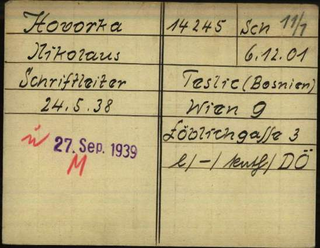 Hovorka 14245 Sch 11/1
Nikolaus 6.12.01
Schriftleiter Teslic (Bosnien)
24.5.38 Wien 9
Löblichgasse 3
ü 27. Sep. 1939
M
l/-/ kath/ DÖ